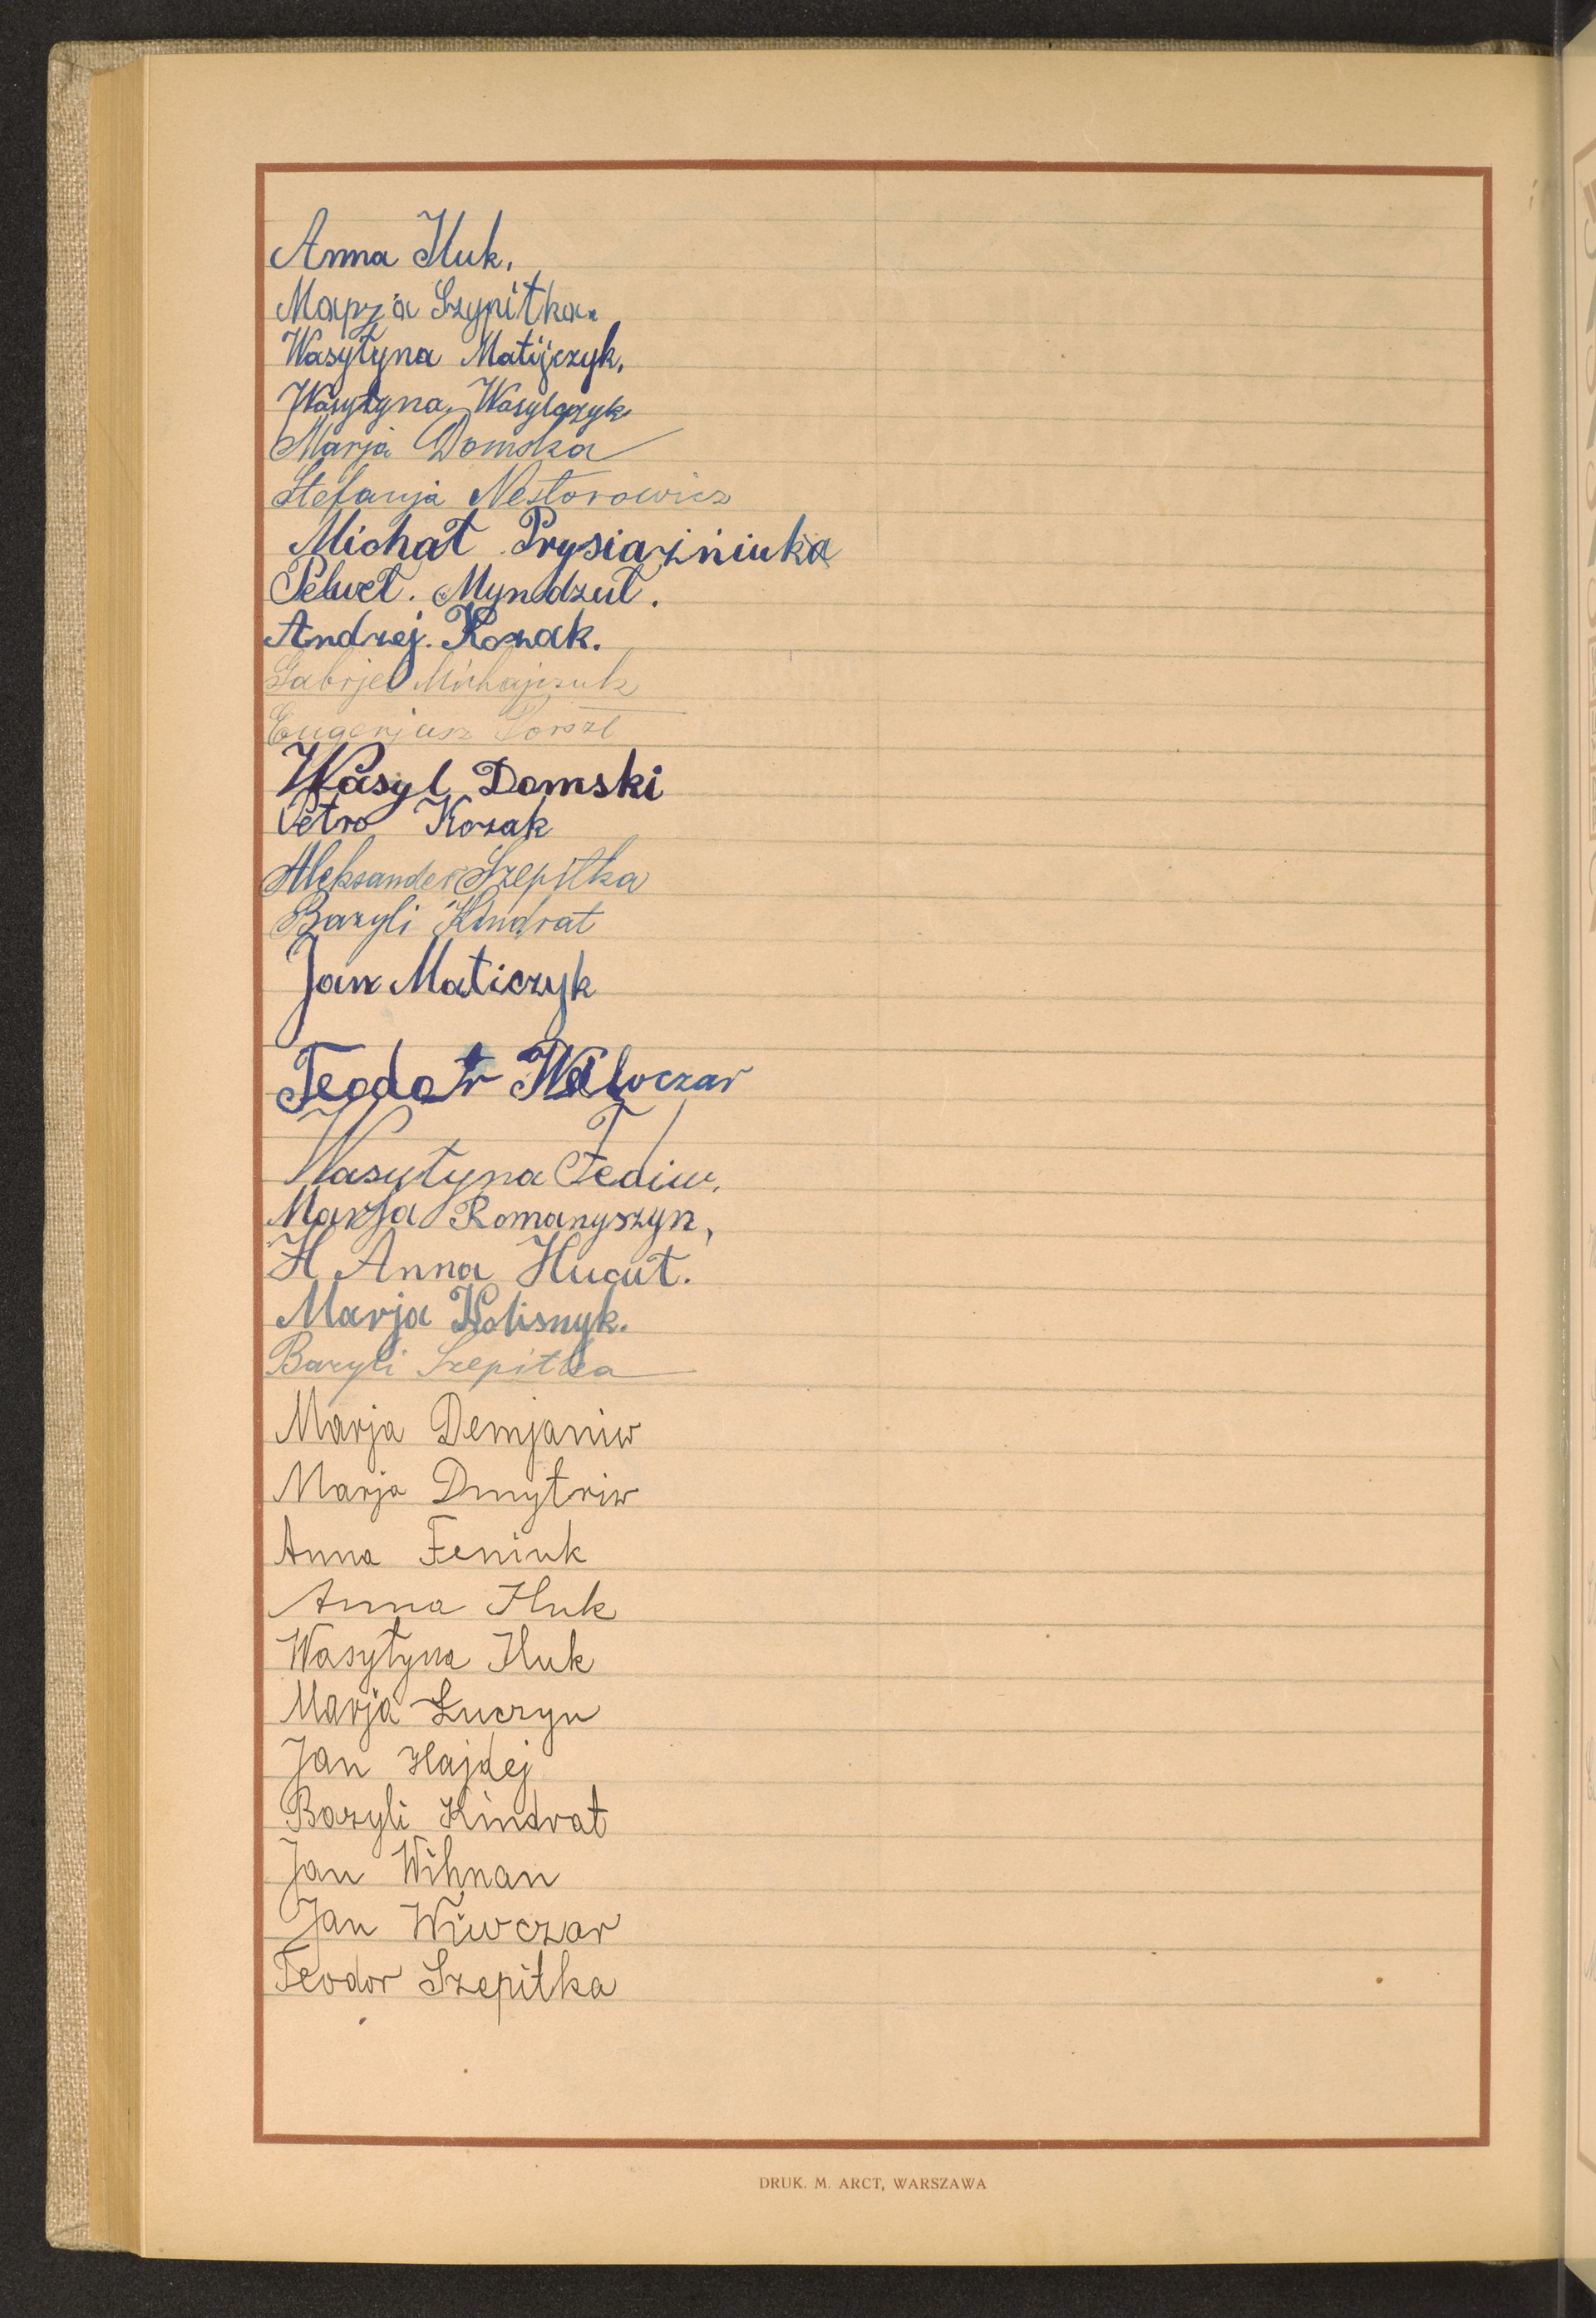 Anna Iluk.
Mapja Szypitka.
Wasytyna Matijczyk.
Wasytyna Wasylczyk
Marja Domska
Stefanja Nestorowicz
Michał Prysiaźniuka
Myndzut.
Andrzej. Kozak.
Gabrjel Michajczuk
Eugenjusz
Wasyl Domski
Petro Kozak
Aleksander Szepitka
Bazyli Kindrat
Jan Maticzyk
Teodor Wiwczar
Wasytyna Fediw.
Marja Romanyszyn,
H Anna Hucuł.
Marja Kolisnyk.
Bazyli Szepitka
Marja Demjaniw
Marja Dmytriw
Anna Feniuk
Anna Iluk
Wasytyna Iluk
Marja Łuczyn
Jan Hajdej
Bazyli Kindrat
Jan Wihnan
Jan Wiwczar
Teodor Szepitka
DRUK. M. ARCT, WARSZAWA